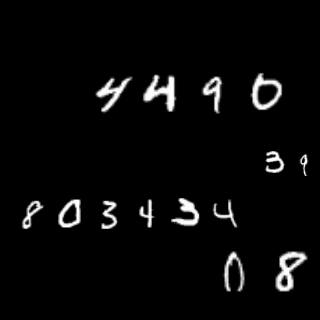 4490
39
803434
08